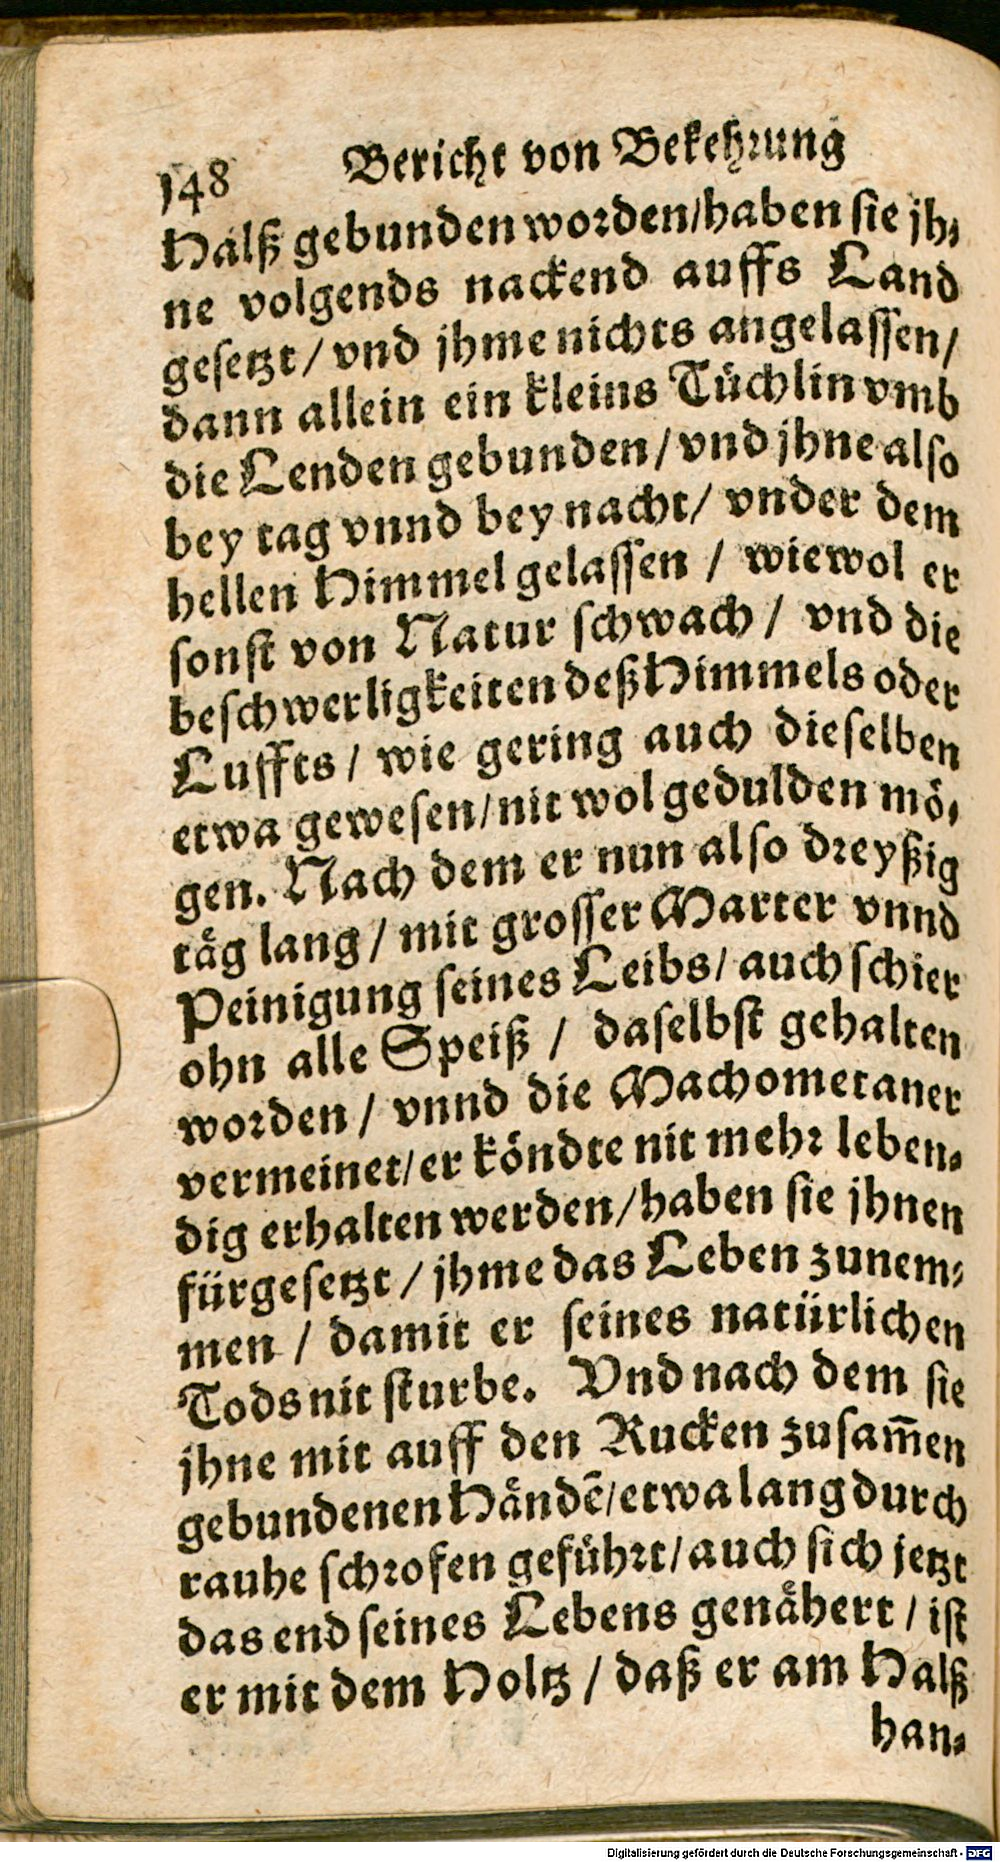 148 Bericht von Bekehrung
Halß gebunden worden/haben sie jh⸗
ne volgends nackend auffs Land
gesetzt/ vnd jhme nichts angelassen/
dann allein ein kleins Tüchlin vmb
die Lenden gebunden/vnd jhne also
bey tag vnnd bey nacht/ vnder dem
hellen Himmel gelassen / wiewol er
sonst von Natur schwach/ vnd die
beschwerligkeiten deß Himmels oder
Luffts/ wie gering auch dieselben
etwa gewesen/nit wol gedulden mö⸗
gen. Nach dem er nun also dreyßig
täg lang/ mit grosser Marter vnnd
Peinigung seines Leibs/ auch schier
ohn alle Speiß / daselbst gehalten
worden/ vnnd die Machometaner
vermeinet/er köndte nit mehr leben⸗
dig erhalten werden/haben sie jhnen
fürgesetzt/ jhme das Leben zunem⸗
men / damit er seines natürlichen
Tods nit sturbe. Vnd nach dem sie
jhne mit auff den Rucken zusam̄en
gebundenen Händẽ/etwa lang durch
rauhe schrofen geführt/auch sich jetzt
das end seines Lebens genähert/ ist
er mit dem Holtz / daß er am Halß
han⸗
Digitalisierung gefördert durch die Deutsche Forschungsgemeinschaft - DFG